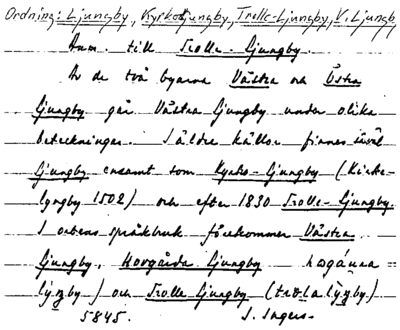 Ordning: Ljungby, Kyrkoljungby, Trolle-Ljungby, V. Ljungb
Anm. till Trolle-Ljungby.
Av de två byarna Västra och Östra
Ljungby går Västra Ljungby under olika
beteckningar. I äldre källor finnes såväl
Ljungby ensamt som Kyrko-Ljungby (Kirke-
lyngby 1502) och efter 1830 Trolle-Ljungby.
I ortens språkbruk förekommer Västra
Ljungby, Hovgårda Ljungby
och Trolle Ljungby
5845. I. Ingers.